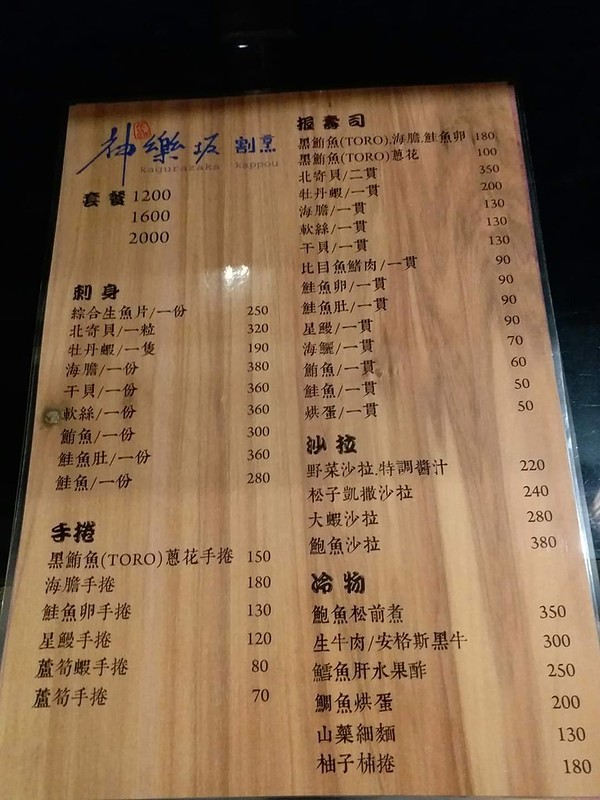 神樂坂 割烹
kagurazaka kappou
套餐 1200
1600
2000
刺身
綜合生魚片/一份 250
北寄貝/一粒 320
牡丹蝦/一隻 190
海膽/一份 380
干貝/一份 360
軟絲/一份 360
鮪魚/一份 300
鮭魚肚/一份 360
鮭魚/一份 280
手捲
黑鮪魚(TORO)蔥花手捲 150
海膽手捲 180
鮭魚卵手捲 130
星鰻手捲 120
蘆筍蝦手捲 80
蘆筍手捲 70
握壽司
黑鮪魚(TORO).海膽.鮭魚卵 180
黑鮪魚(TORO)蔥花 100
北寄貝/二貫 350
牡丹蝦/一貫 200
海膽/一貫 130
軟絲/一貫 130
干貝/一貫 130
比目魚鰭肉/一貫 90
鮭魚卵/一貫 90
鮭魚肚/一貫 90
星鰻/一貫 90
海鱺/一貫 70
鮪魚/一貫 60
鮭魚/一貫 50
烘蛋/一貫 50
沙拉
野菜沙拉.特調醬汁 220
松子凱撒沙拉 240
大蝦沙拉 280
鮑魚沙拉 380
冷物
鮑魚松前煮 350
生牛肉/安格斯黑牛 300
鱈魚肝水果酢 250
鯛魚烘蛋 200
山藥細麵 130
柚子柿捲 180